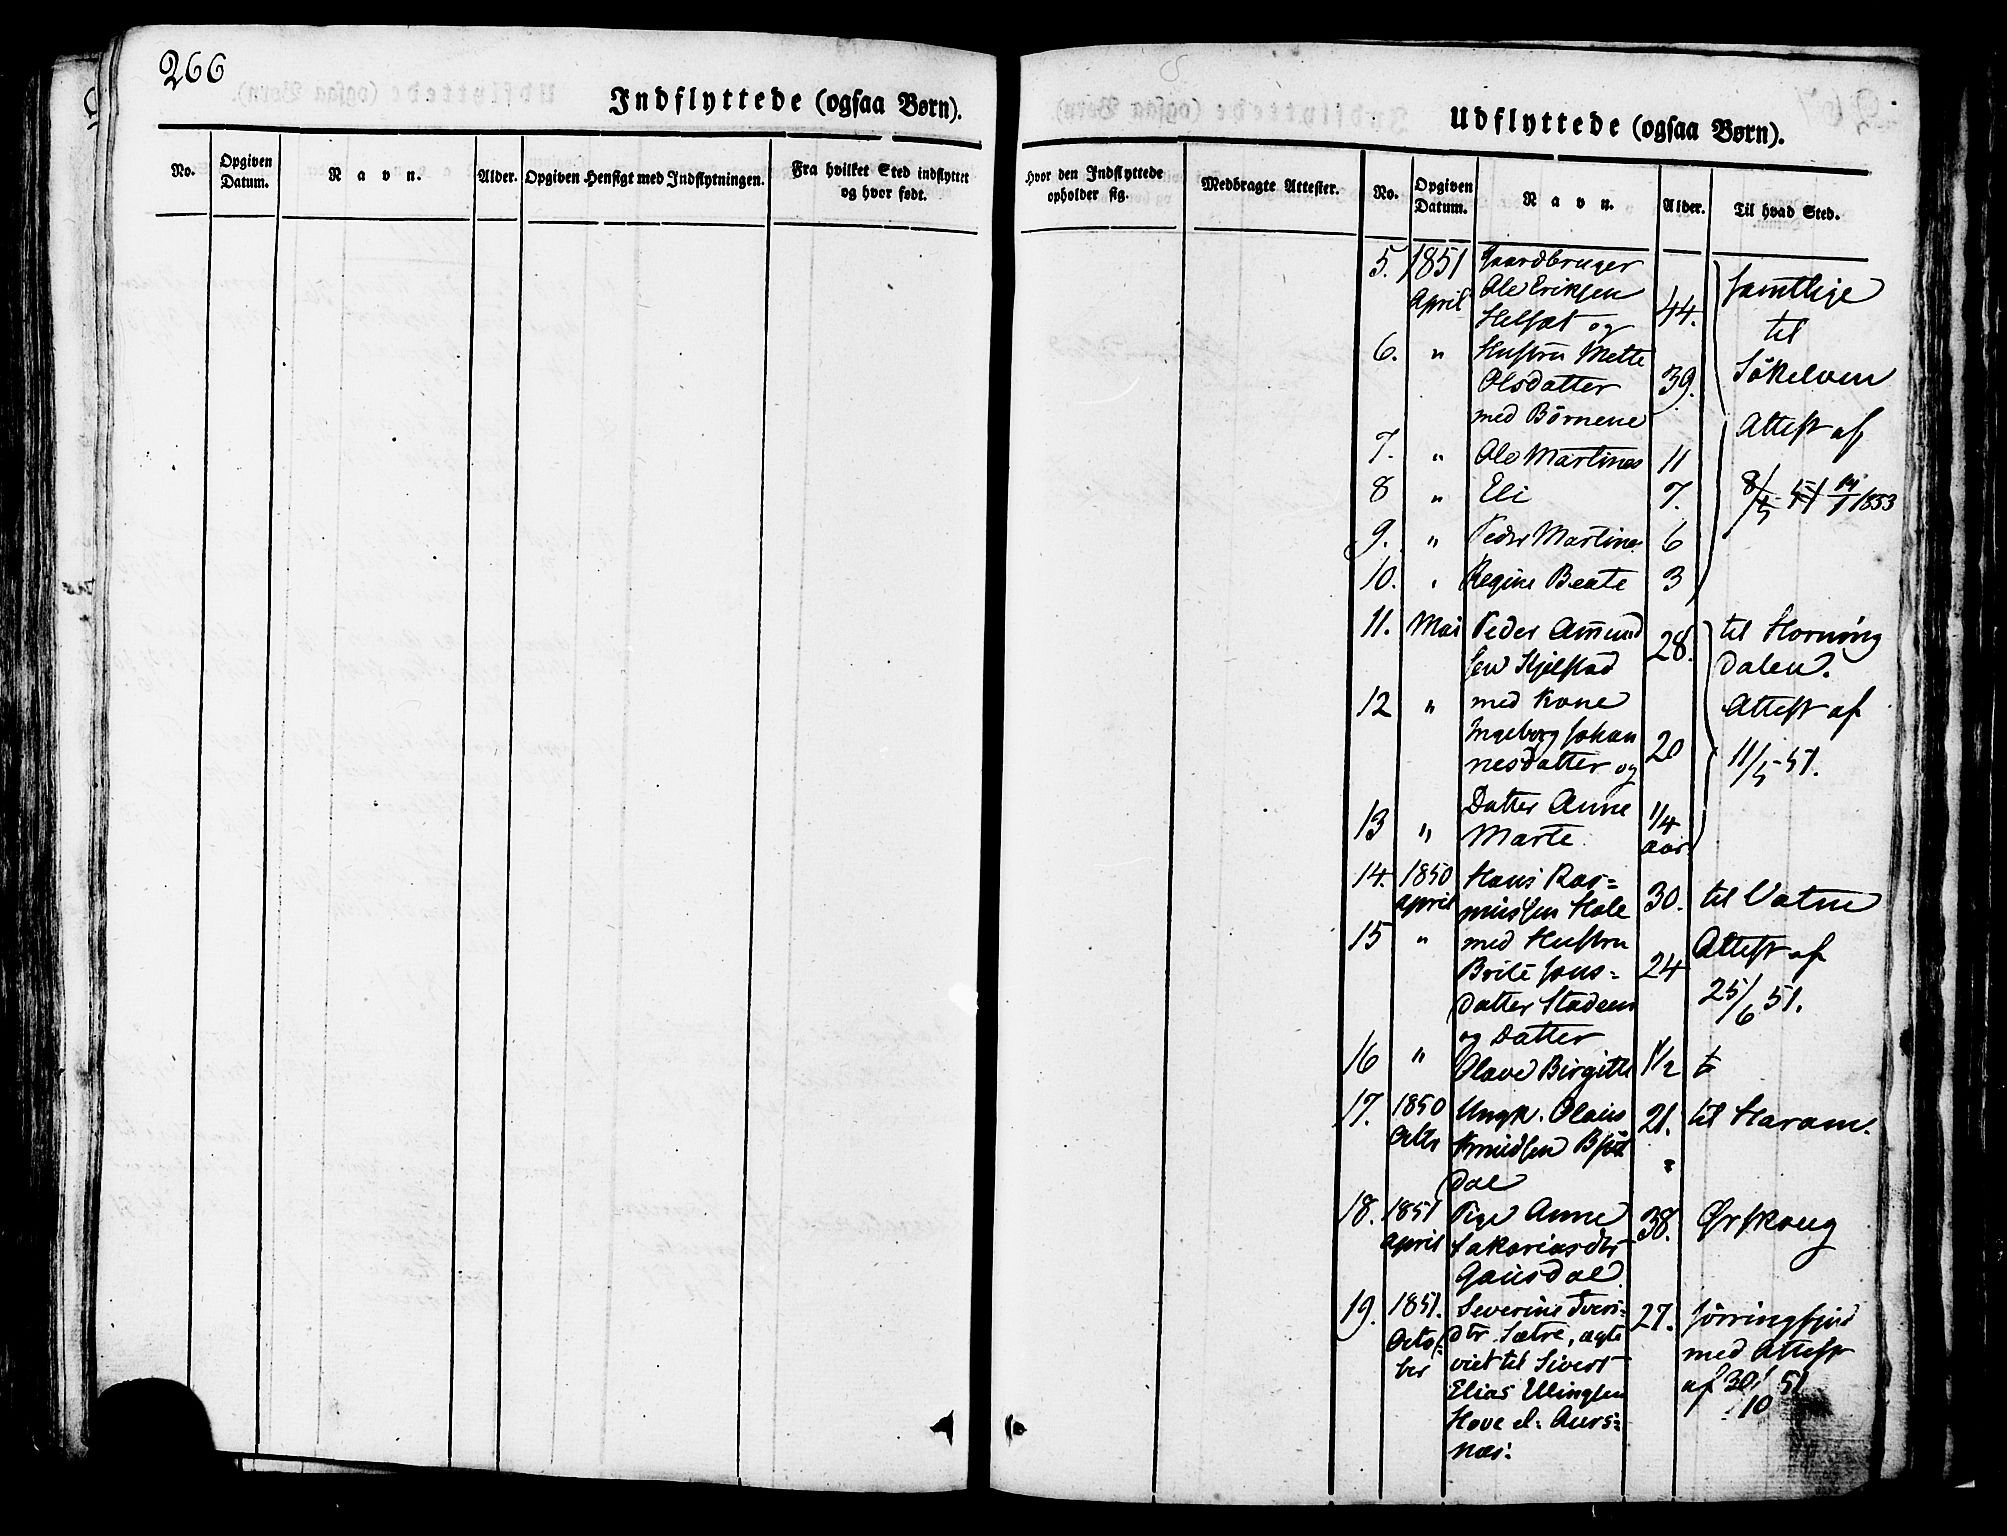 266
Indflyttede (ogsaa Børn).
Udflyttede (ogsaa Børn).
No. Opgiven Datum. Navn. Alder. Opgiven Hensigt med Indflytningen. Fra hvilket Sted indflyttet og hvor født. Hvor den Indflyttede opholder sig. Medbragte Attester. No. Opgiven Datum. Navn. Alder. Til hvad Sted.
5. 1851 Gaardbruger
April Ole Eriksen 44. Samtlige
Helsæt og til
6. " Hustru Mette Søkelven
Olsdatter 39.
med Børnene Attest af
7. " Ole Martinus 11
8 " Eli 7. 8/5 51 1853
9. " Peder Martinus 6
10. " Regine Beate 3
11. Mai Peder Amund 28. til Horning
sen Kjelstad dalen.
12 " med Kone Attest af
Ingeborg Johan 20
nesdatter og 11/5 51.
Datter Anne 1/4
13 " Marte aar
14. 1850 Hans Ras=
April mussen Hole 30. til Vatne
15 " med Hustru Attest af
Brite Jons= 24
datter Stadsnes 25/6 51.
og Datter
16 " Olave Birgitte 1 1/2
17. 1850 Ungk. Olaus 21. til Haram.
Octbr Knudsen
dal
18. 1851 Pige Anne 38. Ørskoug
April Sakariasdtr
Gausdal
19. 1851. Severine Ivers= 27. Jørringfjord
Octo= dtr. Sætre, ægte med Attest
ber viet til Sivert af 30/10 51
Elias Ellingsen
Hove el. Aurs=
næs.